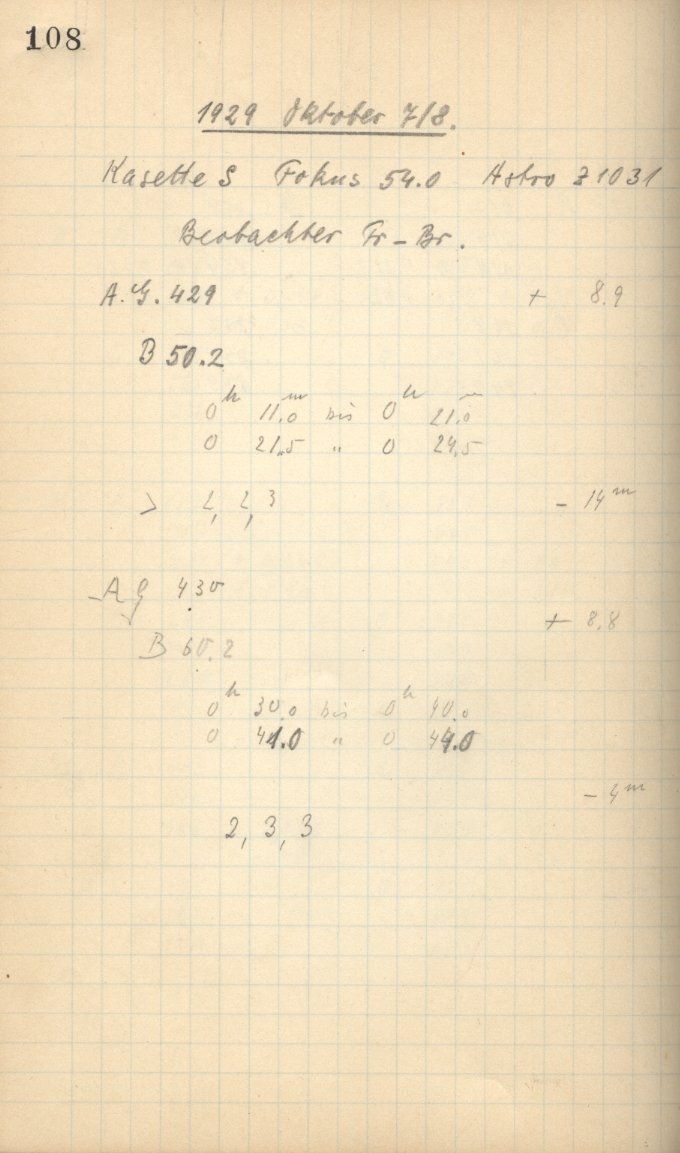 108
1929 Oktober 7/8.
Kasette S Fokus 54.0 Astro Z 1031
Beobachter Fr - Br.
A.G. 429 + 8.9
B 50.2
0h 11.0m bis 0h 21.0m
0 21.5 " 0 24.5
> 2, 2, 3 - 14m
AG 430
+ 8.8
B 60.2
0h 30.0 bis 0h 40.0
0 41.0 " 0 44.0
- 4m
2, 3, 3